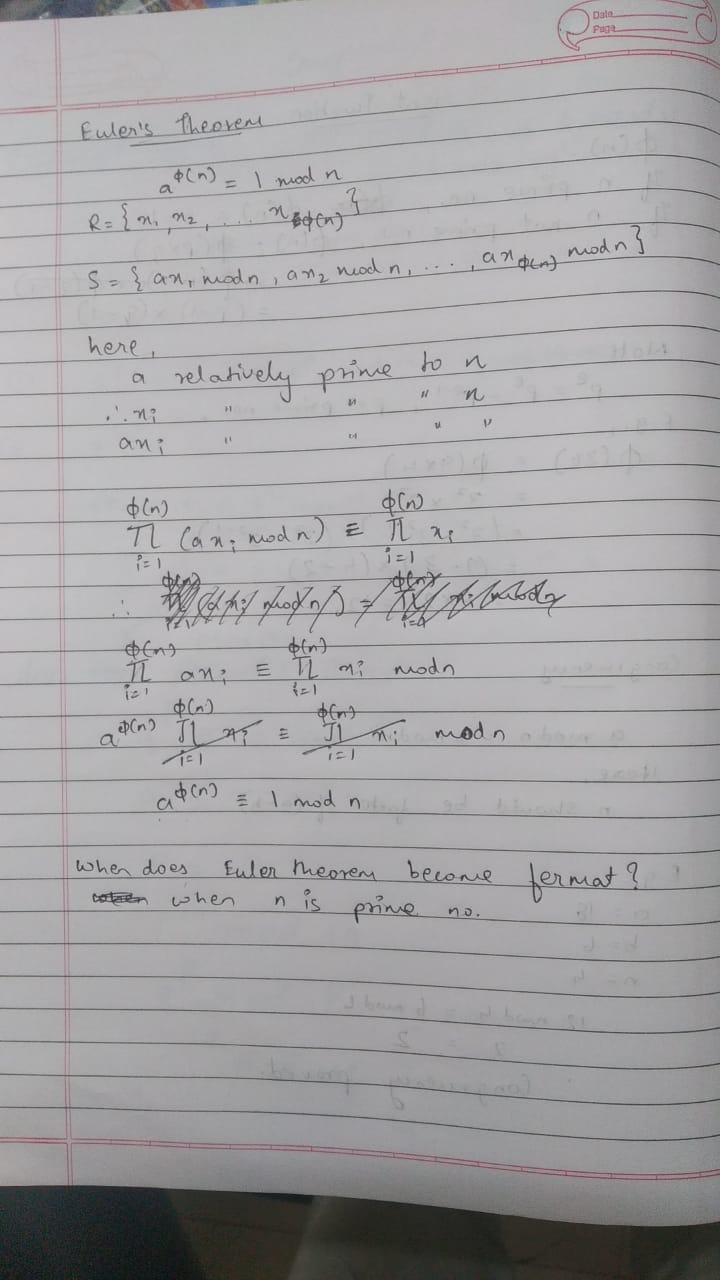 Date
Page
Euler's Theorem
a^ϕ(n) = 1 mod n
R = { x₁, x₂, .... x_ϕ(n) }
S = { ax₁ mod n, ax₂ mod n, ...., ax_ϕ(n) mod n }
here,
a relatively prime to n
∴ xᵢ " " " n
axᵢ " " " "
ϕ(n) ϕ(n)
∏ (axᵢ mod n) ≡ ∏ xᵢ
i=1 i=1
ϕ(n) ϕ(n)
∏ axᵢ ≡ ∏ xᵢ mod n
i=1 i=1
ϕ(n) ϕ(n)
a^ϕ(n) ∏ xᵢ ≡ ∏ xᵢ mod n
i=1 i=1
a^ϕ(n) ≡ 1 mod n
When does Euler theorem become fermat?
when n is prime no.